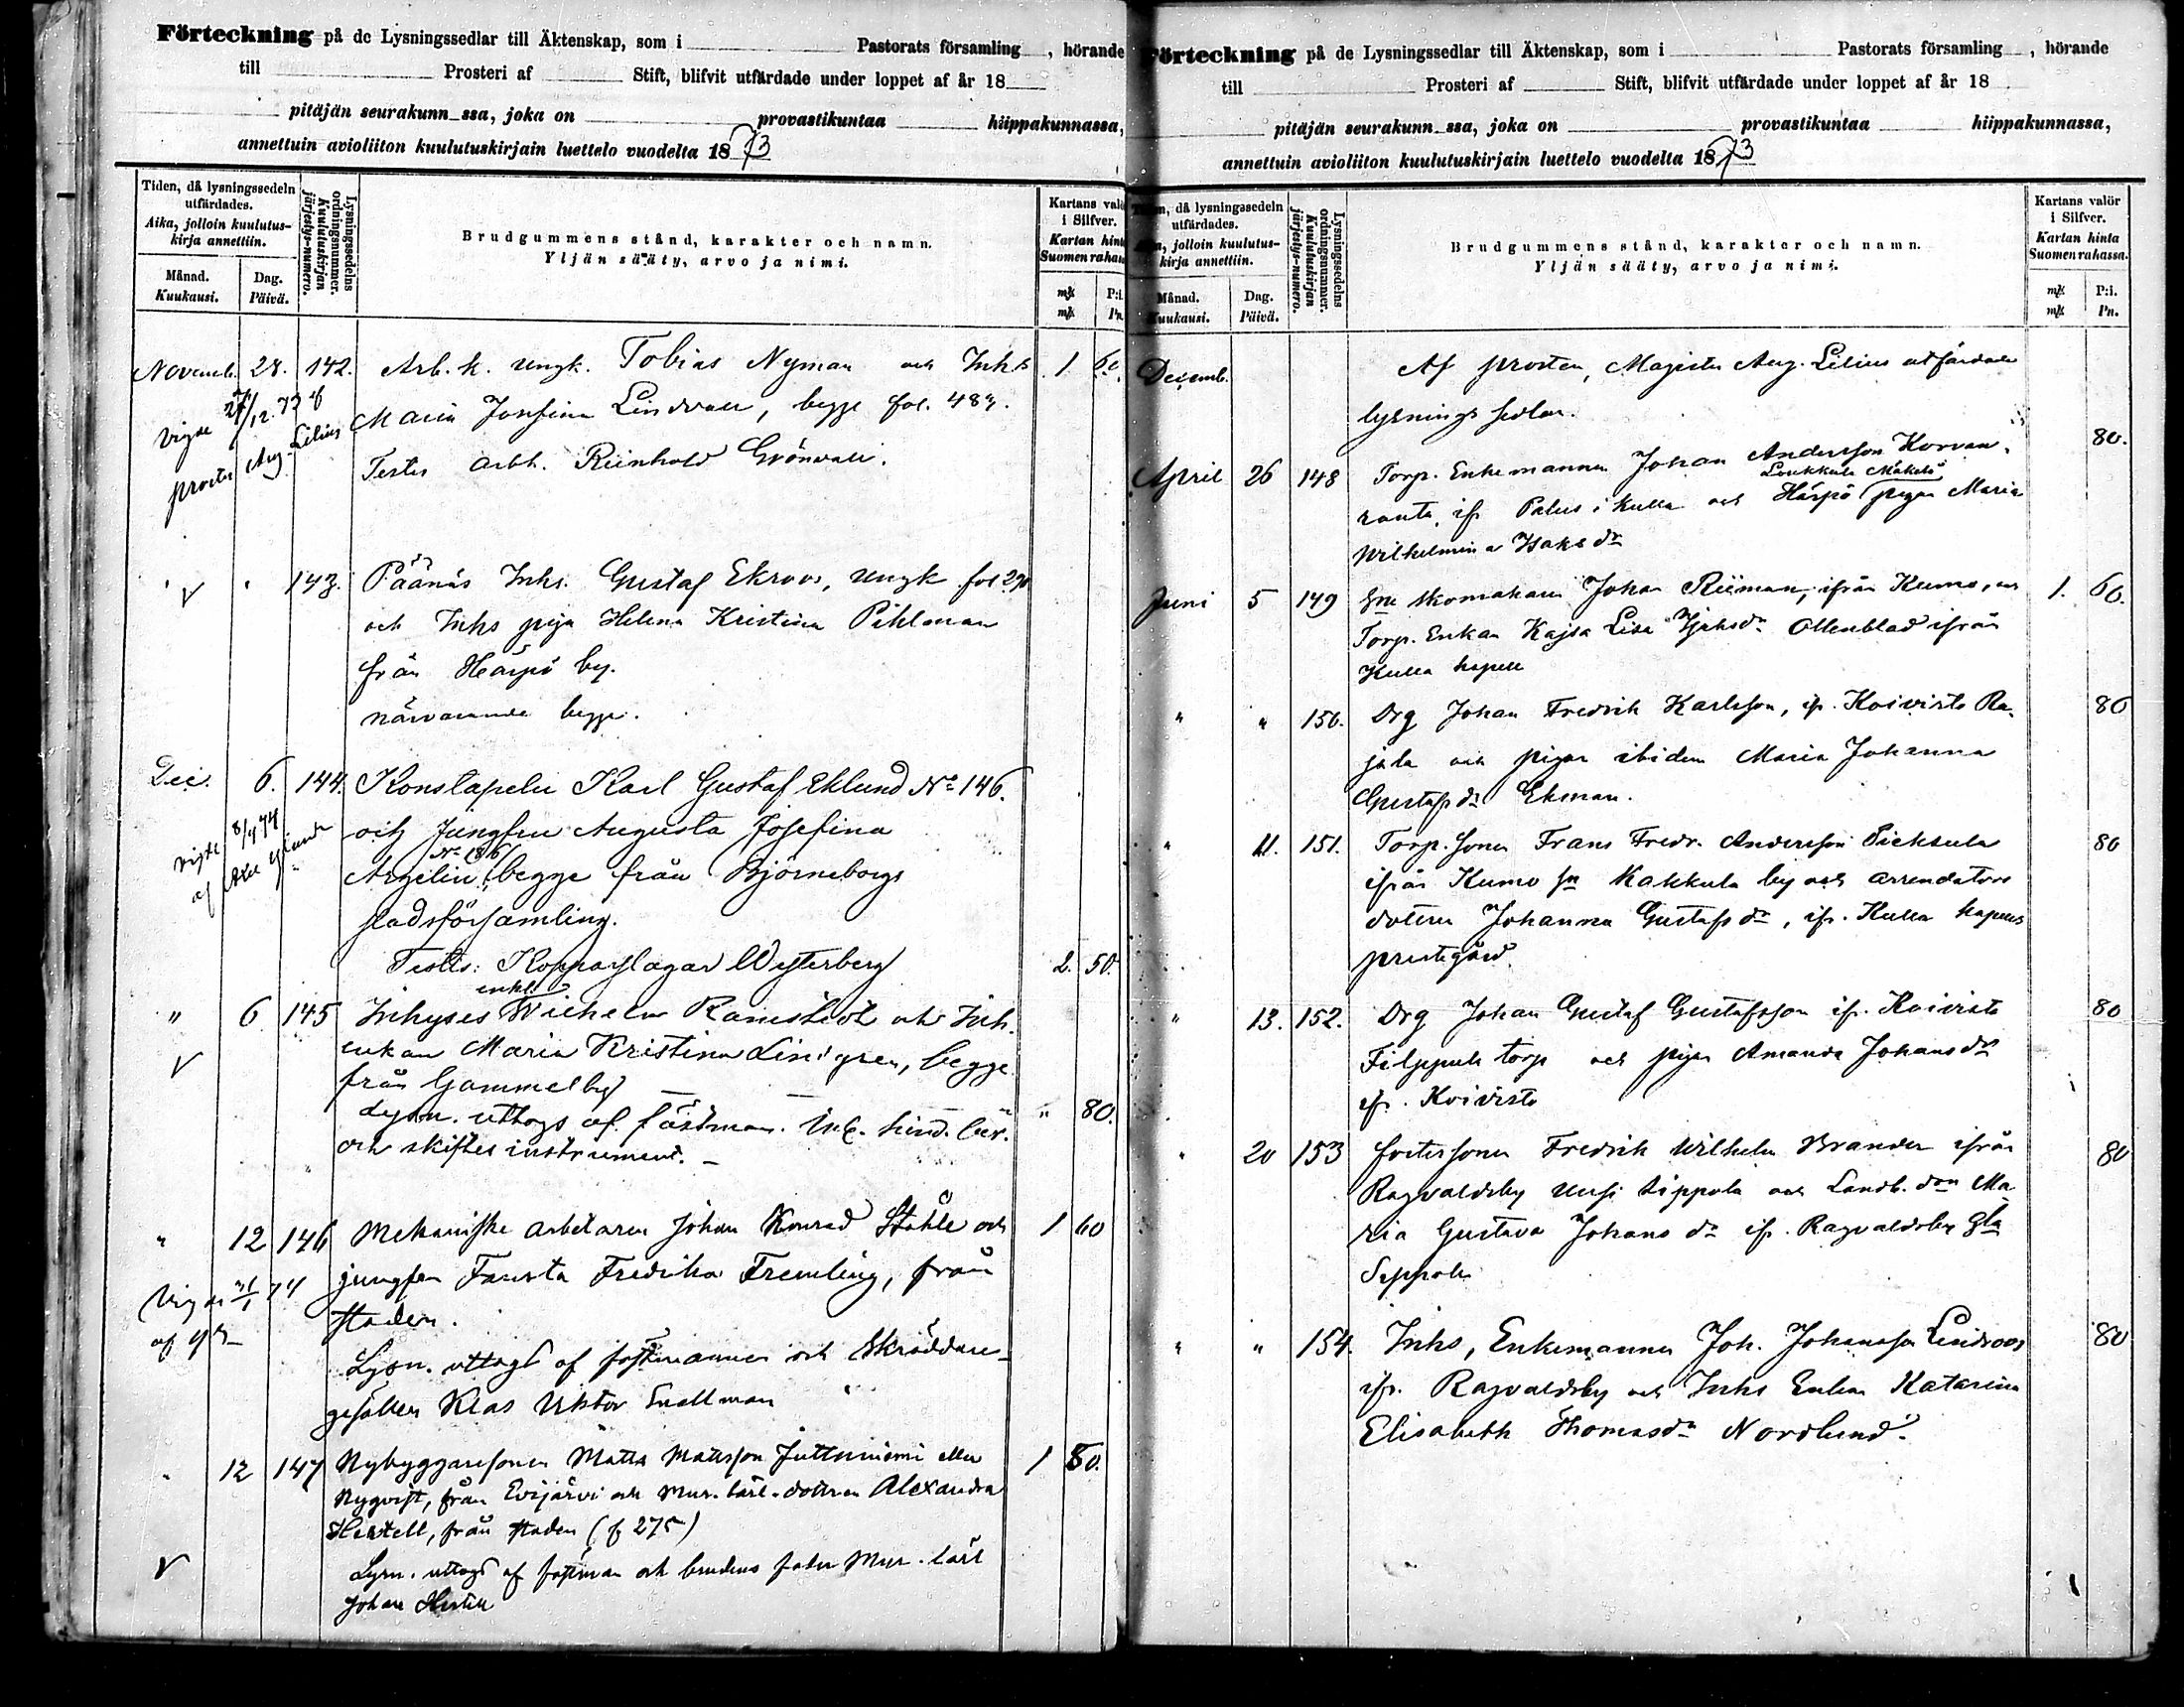 Förteckning på de Lysningssedlar till Äktenskap, som i Pastorats församling , hörande
till Prosteri af Stift, blifvit utfärdade under loppet af år 18
pitäjän seurakunn ssa, joka on provastikuntaa hiippakunnassa,
annettuin avioliiton kuulutuskirjain luettelo vuodelta 1873
Tiden, då lysningssedeln utfärdades.
Aika, jolloin kuulutus-kirja annettiin.
Månad. Kuukausi.
Dag. Päivä.
Lysningssedelns ordningsnummer. Kuulutuskirjan järjestys-numero.
Brudgummens stånd, karakter och namn.
Yljän sääty, arvo ja nimi.
Kartans valör i Silfver.
Kartan hinta Suomen rahassa
mk P:i.
mk Pn.
Novemb. 28. 142. Arb. k. ungk. Tobias Nyman och Inhs 1 60
Maria Josefina Lindvall, begge fol. 487.
Testis arbk. Reinhold Grönvall.
Vigde 27/12.73 af
prosten Aug. Lilius
" " 143. Päänäs Inhs. Gustaf Ekroos, ungk fol 290
och Inhs piga Helena Kristina Pihlman
från Härpö by.
närvarande begge.
Dec. 6. 144. Konstapeln Karl Gustaf Eklund No 146.
och Jungfru Augusta Josefina
No 186
Argelin, begge från Björneborgs
stadsförsamling.
Testis: Kopparslagar Westerberg 2. 50.
Vigde 8/4 74
enkl.
" 6 145 Inhyses Wilhelm Ramstedt och Inh.
enkan Maria Kristina Lindgren, begge
från Gammelby
Lysn. uttogs af fästman. Inl. hind. bev. " 80.
och skiftes instrument.
" 12 146 Mekaniske arbetaren Johan Konrad Ståhle och 1 60
jungfru Fausta Fredrika Fremling, från
staden.
Lysn. uttogs af fästmannen och Skräddare-
gesällen Klas Viktor Snellman
" 12 147 Nybyggaresonen Matts Mattsson Juttuniemi eller 1 80.
Nyqvist, från Evijärvi och Mur. lärl. dottren Alexandra
Hertell, från staden (f 275)
Lysn. uttogs af fästman och brudens fader Mur. lärl
Johan Hertell
Förteckning på de Lysningssedlar till Äktenskap, som i Pastorats församling , hörande
till Prosteri af Stift, blifvit utfärdade under loppet af år 18
pitäjän seurakunn ssa, joka on provastikuntaa hiippakunnassa,
annettuin avioliiton kuulutuskirjain luettelo vuodelta 1873
då lysningssedeln utfärdades.
jolloin kuulutus-kirja annettiin.
Månad. Kuukausi.
Dag. Päivä.
Lysningssedelns ordningsnummer. Kuulutuskirjan järjestys-numero.
Brudgummens stånd, karakter och namn.
Yljän sääty, arvo ja nimi.
Kartans valör i Silfver.
Kartan hinta Suomen rahassa.
mk P:i.
mk Pn.
Decemb. Af prosten, Magister Aug. Lilius utfärdade
lysningssedlar.
April 26 148 Torp. Enkemannen Johan Andersson Korvan- 80.
Loukkula Mäkelä
ranta, ifr Palus i Kulla och Härpö pigan Maria
Wilhelmina Isaksdr
Juni 5 149 Johan Riiman, ifrån Kumo, och 1. 60.
Torp. Enkan Kajsa Lisa Ollenblad ifrån
Kulla kapell
" " 150. Drg Johan Fredrik Karlsson, ifr. Koivisto Ra- 80
jala och pigan ibidem Maria Johanna
Gustafsdr Ekman.
" 11. 151. Torp. Sonen Frans Fredr. Andersson 80
ifrån Kumo sn Kakkula by och arrendators
dotren Johanna Gustafsdr, ifr. Kulla kapells
prestegård.
" 13. 152. Drg Johan Gustaf Gustafsson ifr. Koivisto 80
Filppula torp och pigan Amanda Johansdr
ifr. Koivisto
" 20 153 fostersonen Fredrik Wilhelm Brander ifrån 80
Ragvaldsby Uusi Sippola och Landb. dn Ma
ria Gustava Johansdr ifr. Ragvaldsby Gla
Seppola
" " 154. Inhs, Enkemannen Joh. Johansson Lindroos 80
ifr. Ragvaldsby och Inhs Enkan Katarina
Elisabeth Thomasdr Nordlund.